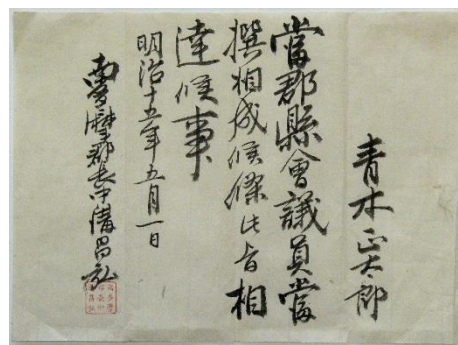 青木正太郎
當郡縣會議員當
撰相成候條此旨相
達候事
明治十五年五月一日
南多摩郡長中溝昌弘